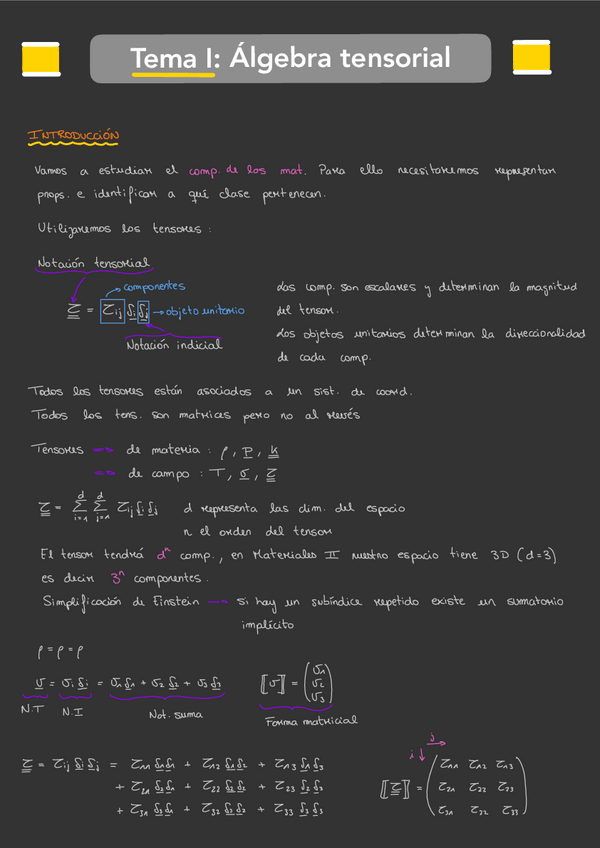 Tema I: Álgebra tensorial
INTRODUCCIÓN
Vamos a estudiar el comp. de los mat. Para ello necesitaremos representar
props. e identificar a qué clase pertenecen.
Utilizaremos los tensores:
Notación tensorial
componentes
τ = τij δi δj → objeto unitario
Notación indicial
Los comp. son escalares y determinan la magnitud
del tensor.
Los objetos unitarios determinan la direccionalidad
de cada comp.
Todos los tensores están asociados a un sist. de coord.
Todos los tens. son matrices pero no al revés
Tensores → de materia: ρ, P, k
→ de campo: T, v, τ
τ = Σ(i=1, d) Σ(j=1, d) τij δi δj d representa las dim. del espacio
n el orden del tensor
El tensor tendrá dⁿ comp., en Materiales II nuestro espacio tiene 3D (d=3)
es decir 3ⁿ componentes.
Simplificación de Einstein → si hay un subíndice repetido existe un sumatorio
implícito
ρ = ρ = ρ
v = vi δi = v1 δ1 + v2 δ2 + v3 δ3 [[v]] = (v1 v2 v3)
N.T N.I Not. suma Forma matricial
j
i
τ = τij δi δj = τ11 δ1δ1 + τ12 δ1δ2 + τ13 δ1δ3
+ τ21 δ2δ1 + τ22 δ2δ2 + τ23 δ2δ3
+ τ31 δ3δ1 + τ32 δ3δ2 + τ33 δ3δ3
[[τ]] = (τ11 τ12 τ13
τ21 τ22 τ23
τ31 τ32 τ33)